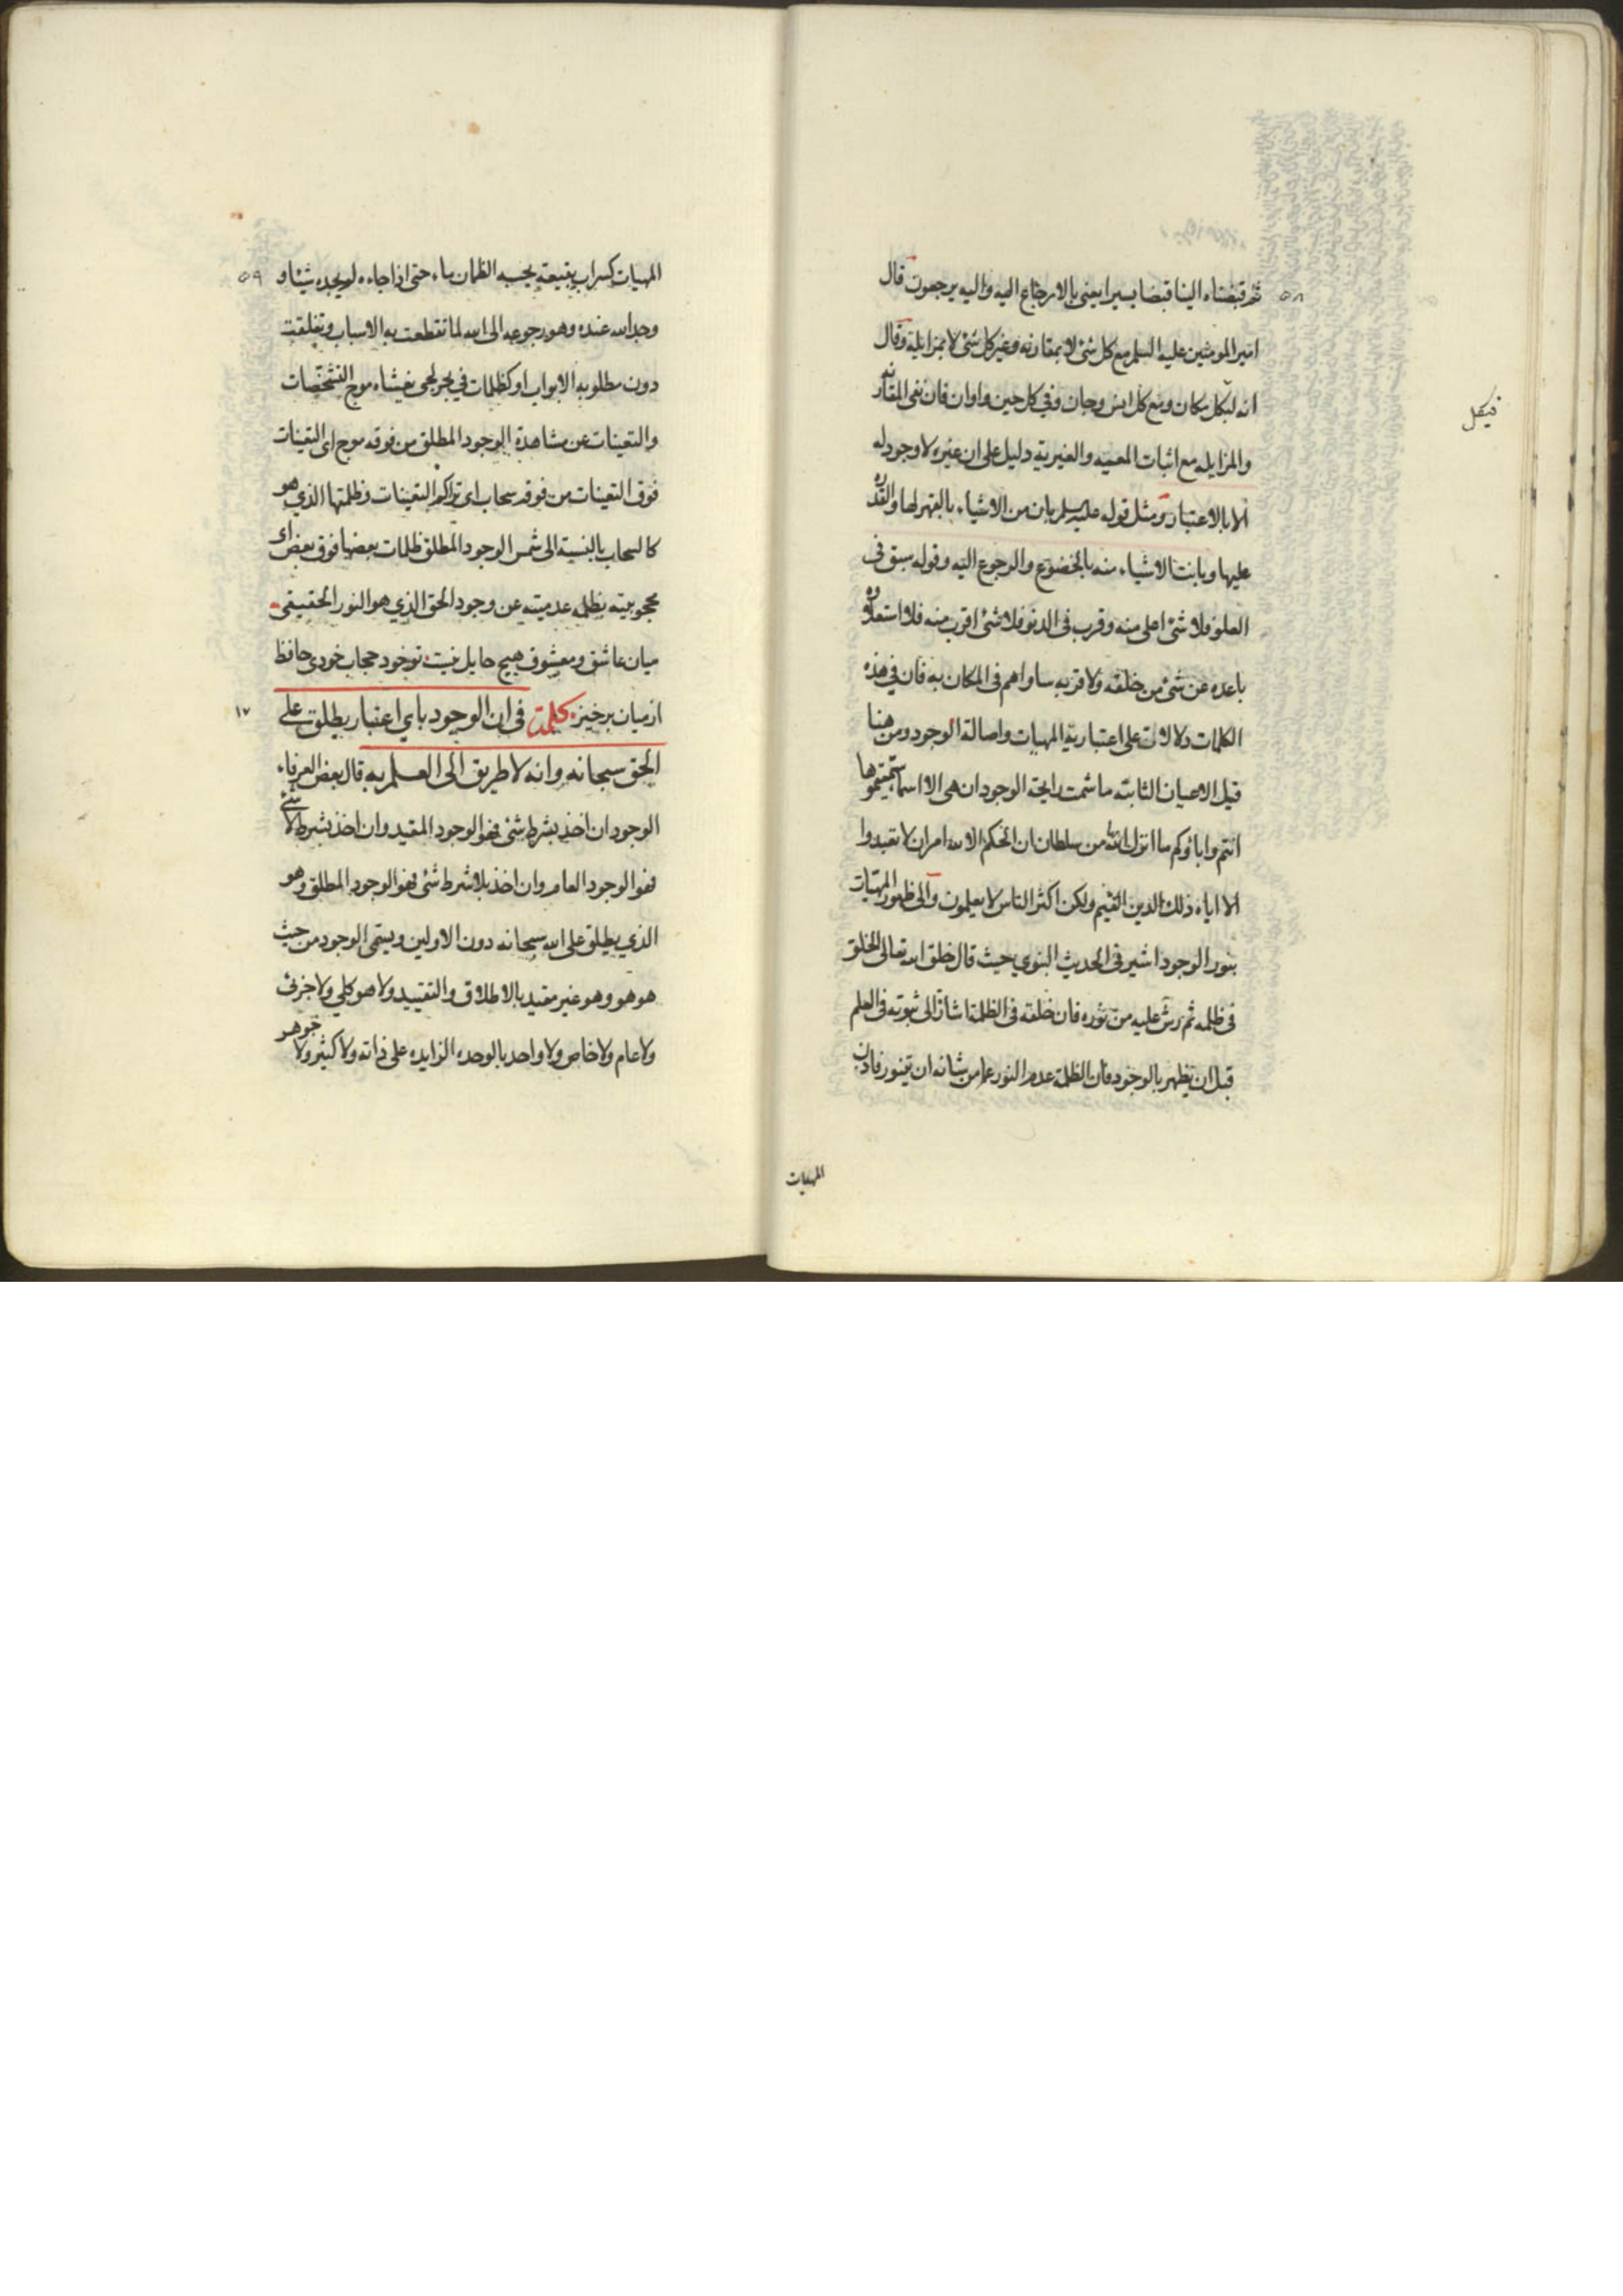 ثم قبضناه الينا قبضا يسيرا يعنى بالارجاع اليه واليه يرجعون قال
امير المومنين عليه السلم مع كل شئ لا بمقارنه وغير كل شئ لا بمزايلة وقال
انه لبكل مكان ومع كل انس وجان وفى كل حين واوان فان نفى المقارنه
والمزايله مع اثبات المعيه والغيرية دليل على ان غيره لا وجود له
الا بالاعتبار ومثل قوله عليه السلم بان من الاشياء بالقهر لها والقدره
عليها وبانت الاشياء منه بالخضوع والرجوع اليه وقوله سبق فى
العلو فلا شئ اعلى منه وقرب فى الدنو فلا شئ اقرب منه فلا استعلاوه
باعده عن شئ من خلقه ولا قربه ساواهم فى المكان به فان فى هذه
الكلمات دلالات على اعتبارية المهيات واصالة الوجود ومن هنا
قيل الاعيان الثابته ما شمت رايحة الوجود ان هى الا اسماء سميتموها
انتم واباؤكم ما انزل الله بها من سلطان ان الحكم الا لله امر ان لا تعبدوا
الا اياه ذلك الدين القيم ولكن اكثر الناس لا يعلمون والى ظهور المهيات
بنور الوجود اشير فى الحديث النبوي حيث قال خلق الله تعالى الخلق
فى ظلمه ثم رش عليه من نوره فان خلقه فى الظلمة اشارة الى ثبوته فى العلم
قبل ان يظهر بالوجود فان الظلمة عدم النور عما من شانه ان يتنور فاذن
المهيات
٥٨
فبكل
المهيات كسراب بقيعة يحسبه الظمان ماء حتى اذا جاءه لم يجده شيئا و
وجد الله عنده وهو رجوعه الى الله لما تقطعت به الاسباب وتغلقت
دون مطلوبه الابواب او كظلمات في بحر لجى يغشاه موج التشخصات
والتعينات عن مشاهدة الوجود المطلق من فوقه موج اى التعينات
فوق التعينات من فوقه سحاب اى تراكم التعينات وظلمتها الذي هو
كالسحاب بالنسبة الى شمس الوجود المطلق ظلمات بعضها فوق بعض اى
محجوبيته بظلمه عدميته عن وجود الحق الذي هو النور الحقيقى
ميان عاشق ومعشوق هيچ حايل نيست تو خود حجاب خودى حافظ
از ميان برخيز كلمة فى ان الوجود باي اعتبار يطلق على
الحق سبحانه وانه لا طريق الى العلم به قال بعض العرفاء
الوجود ان اخذ بشرط شئ فهو الوجود المقيد وان اخذ بشرط لا شئ
فهو الوجود العام وان اخذ بلا شرط شئ فهو الوجود المطلق وهو
الذي يطلق على الله سبحانه دون الاولين ويسمى الوجود من حيث
هو هو وهو غير مقيد بالاطلاق والتقييد ولا هو كلي ولا جزئى
ولا عام ولا خاص ولا واحد بالوحده الزايده على ذاته ولا كثير ولا جوهر
٥٩
١٧